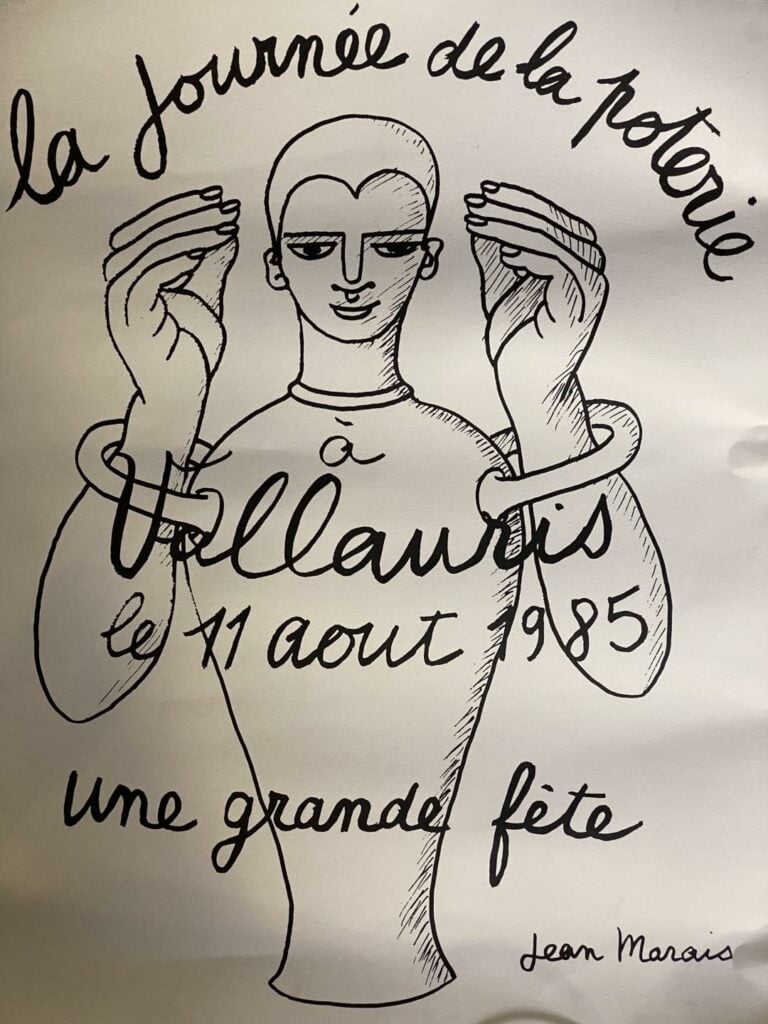 la journée de la poterie
à
Vallauris
le 11 aout 1985
une grande fête
Jean Marais